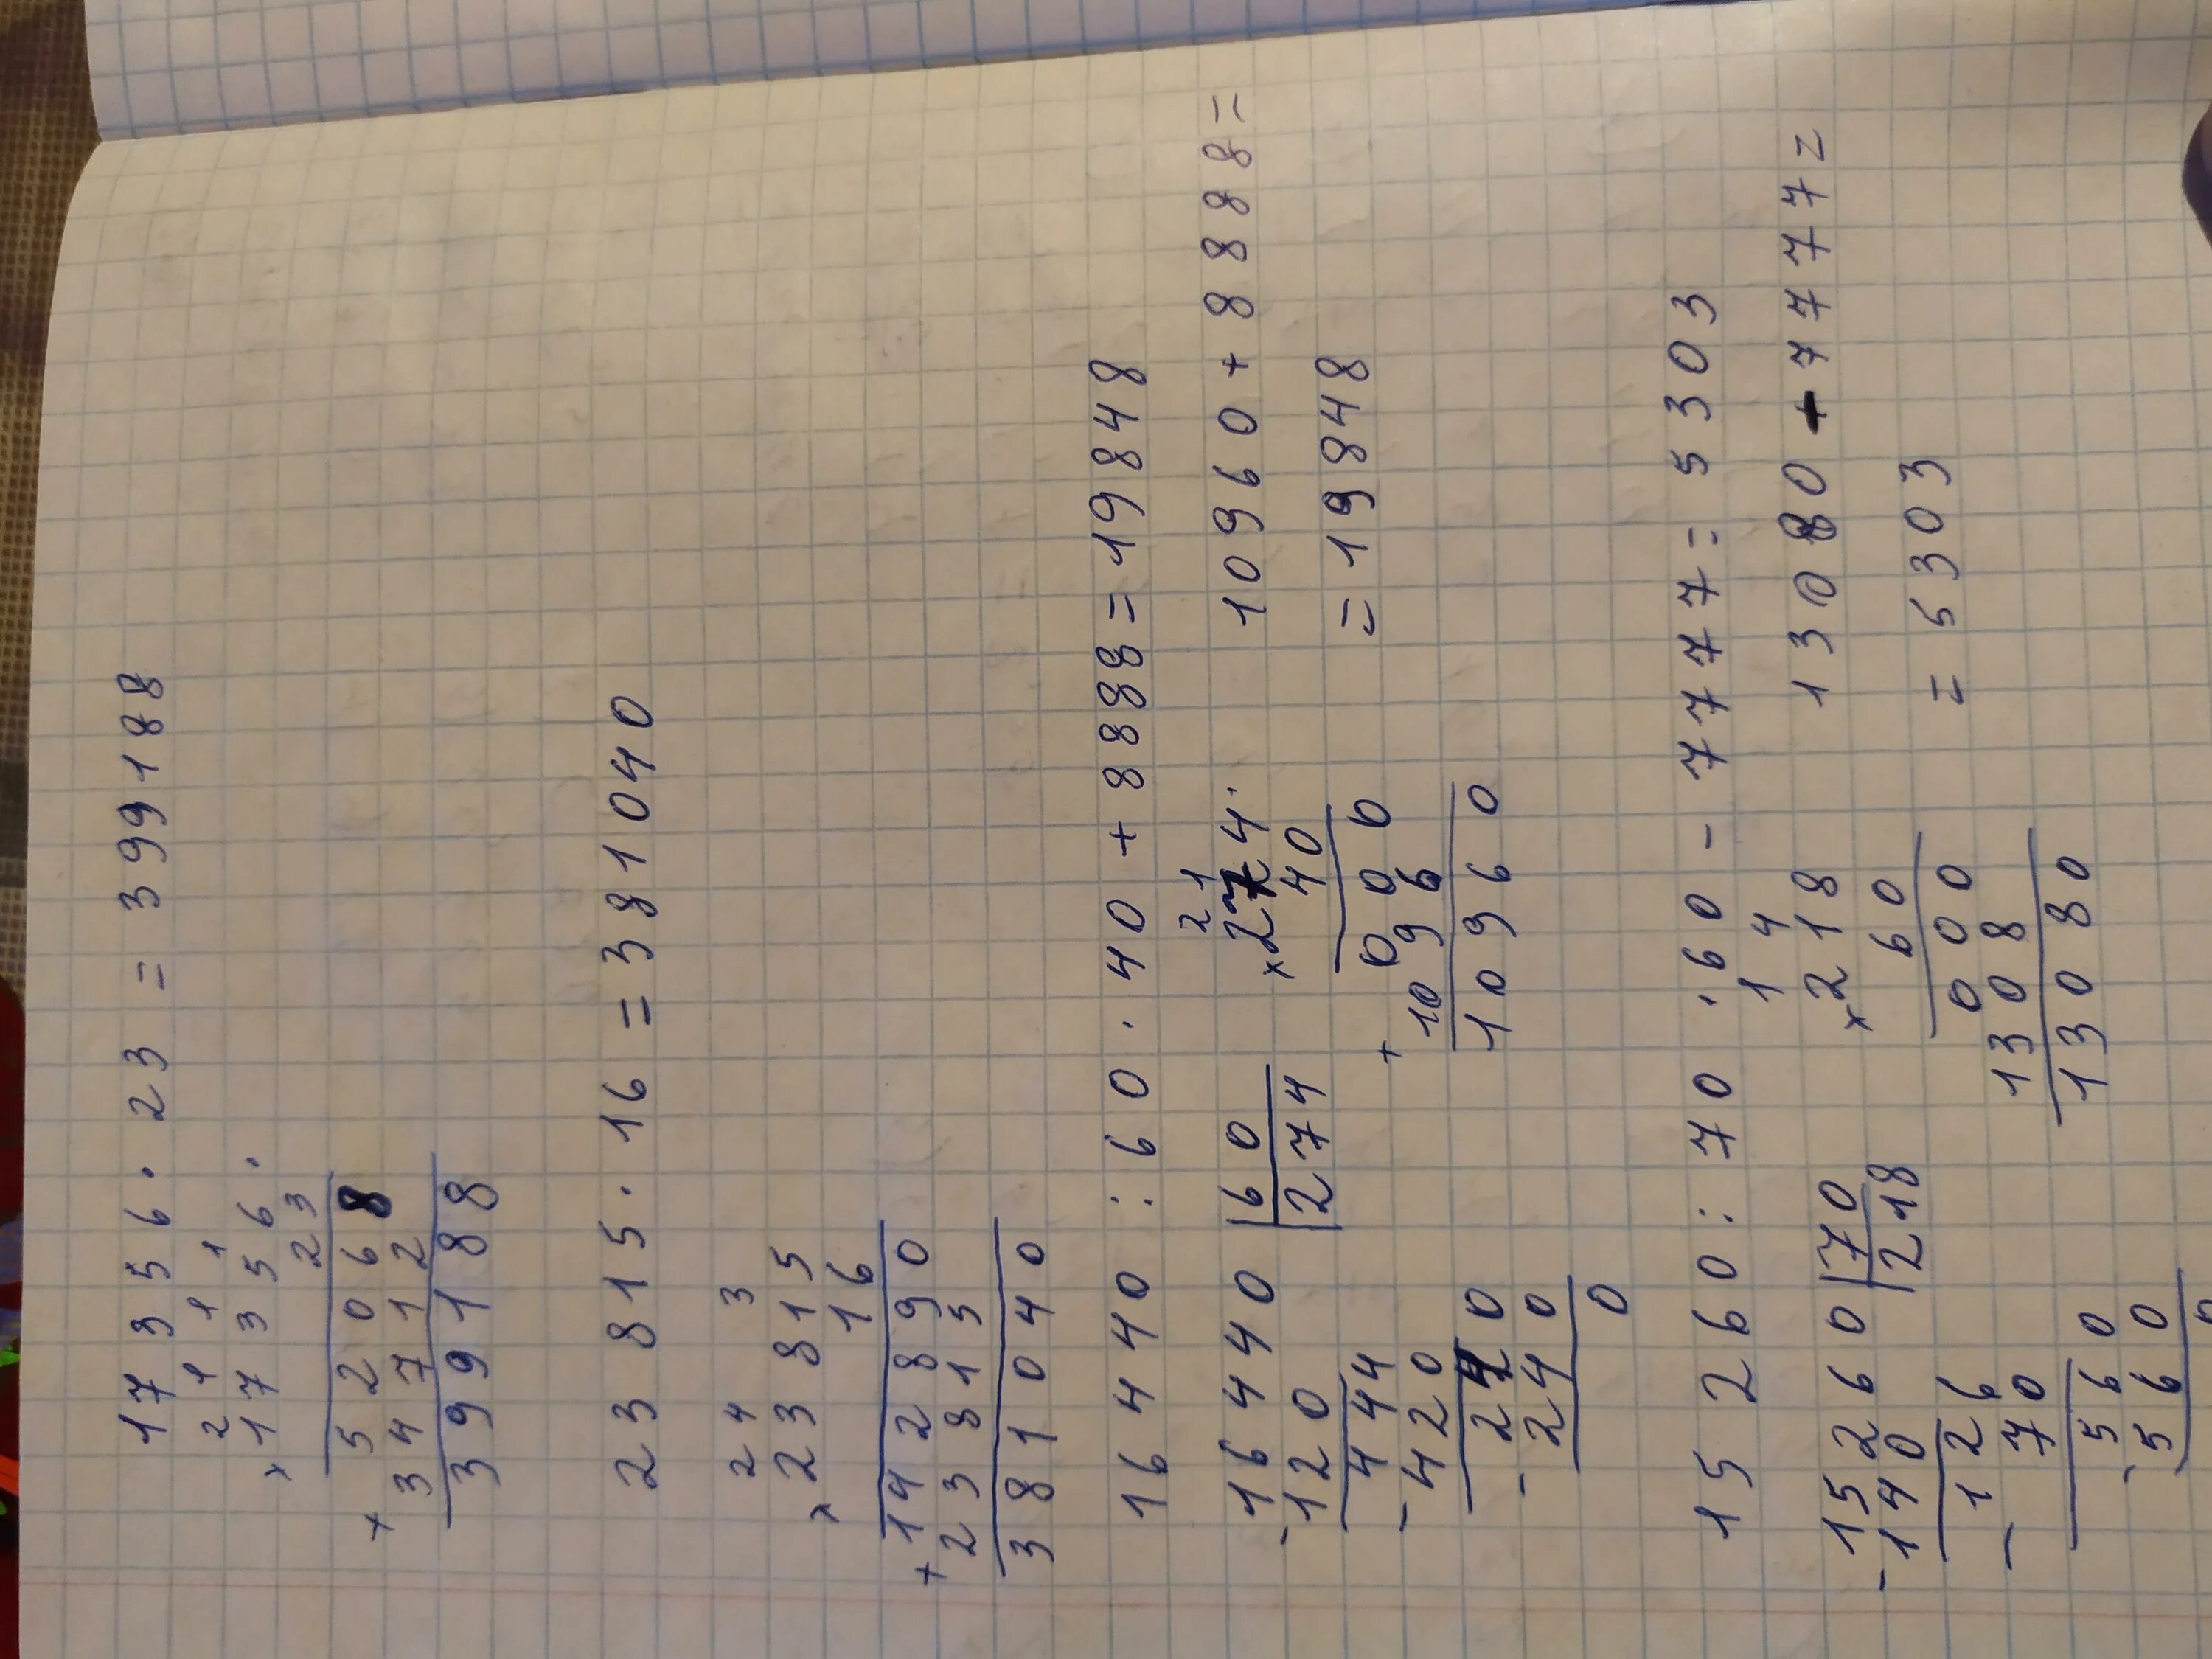 17356 · 23 = 399188
2 1 1 1
× 17356 ·
23
52068
+ 34712
399188
23815 · 16 = 381040
2 4 3
× 23815
16
142890
+ 23815
381040
16440 : 60 · 40 + 8888 = 19848
- 16440 | 60
120 | 274
- 444
420
240
- 240
0
2 1
× 274 ·
40
000
+ 1096
10960
10960 + 8888 =
= 19848
15260 : 70 · 60 - 7777 = 5303
- 15260 | 70
140 | 218
- 126
70
560
- 560
0
1 4
× 218
60
000
1308
13080
13080 - 7777 =
= 5303